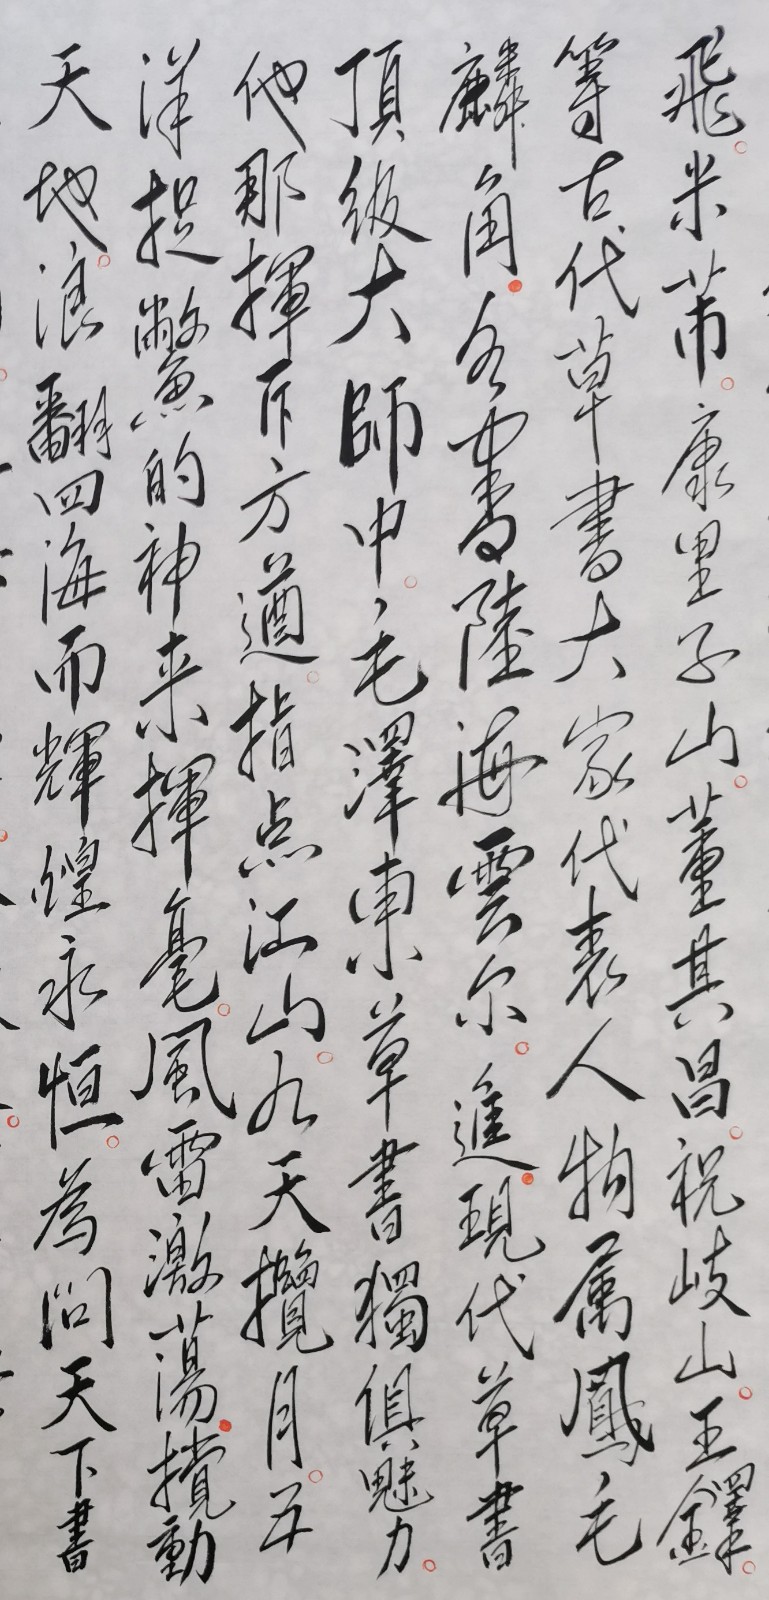 飛米芾康里子山董其昌祝歧山王鐸
等古代草書大家代表人物属鳳毛
麟角各書陸海雲尔進現代草書
頂級大師中毛澤東草書獨俱魅力
他那揮斥方遒指点江山九天攬月五
洋捉鱉的神来揮毫風雷激蕩攪動
天地浪翻四海而輝煌永恒為问天下書